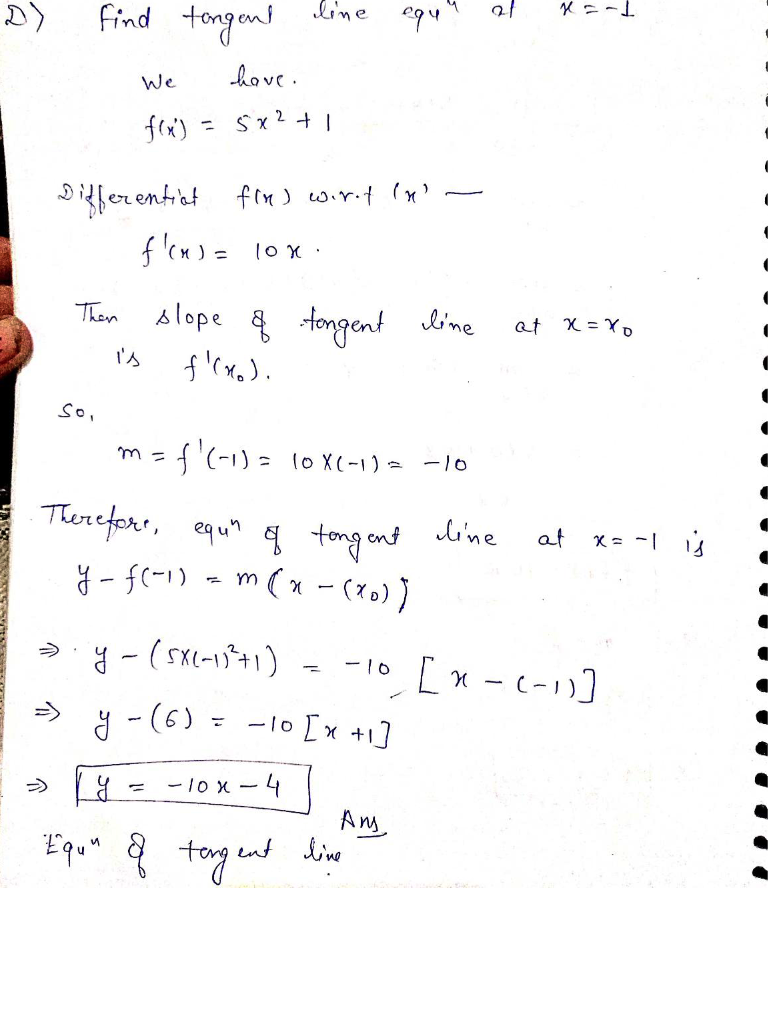 D) Find tangent line equn at x = -1
We have.
f(x) = 5x² + 1
Differentiat f(x) w.r.t 'x' —
f'(x) = 10x.
Then slope of tangent line at x = x₀
is f'(x₀).
So,
m = f'(-1) = 10×(-1) = -10
Therefore, equn of tangent line at x = -1 is
y - f(-1) = m(x - (x₀))
⇒ y - (5×(-1)²+1) = -10 [x - (-1)]
⇒ y - (6) = -10 [x +1]
⇒ y = -10x - 4
Ans
Equn of tangent line